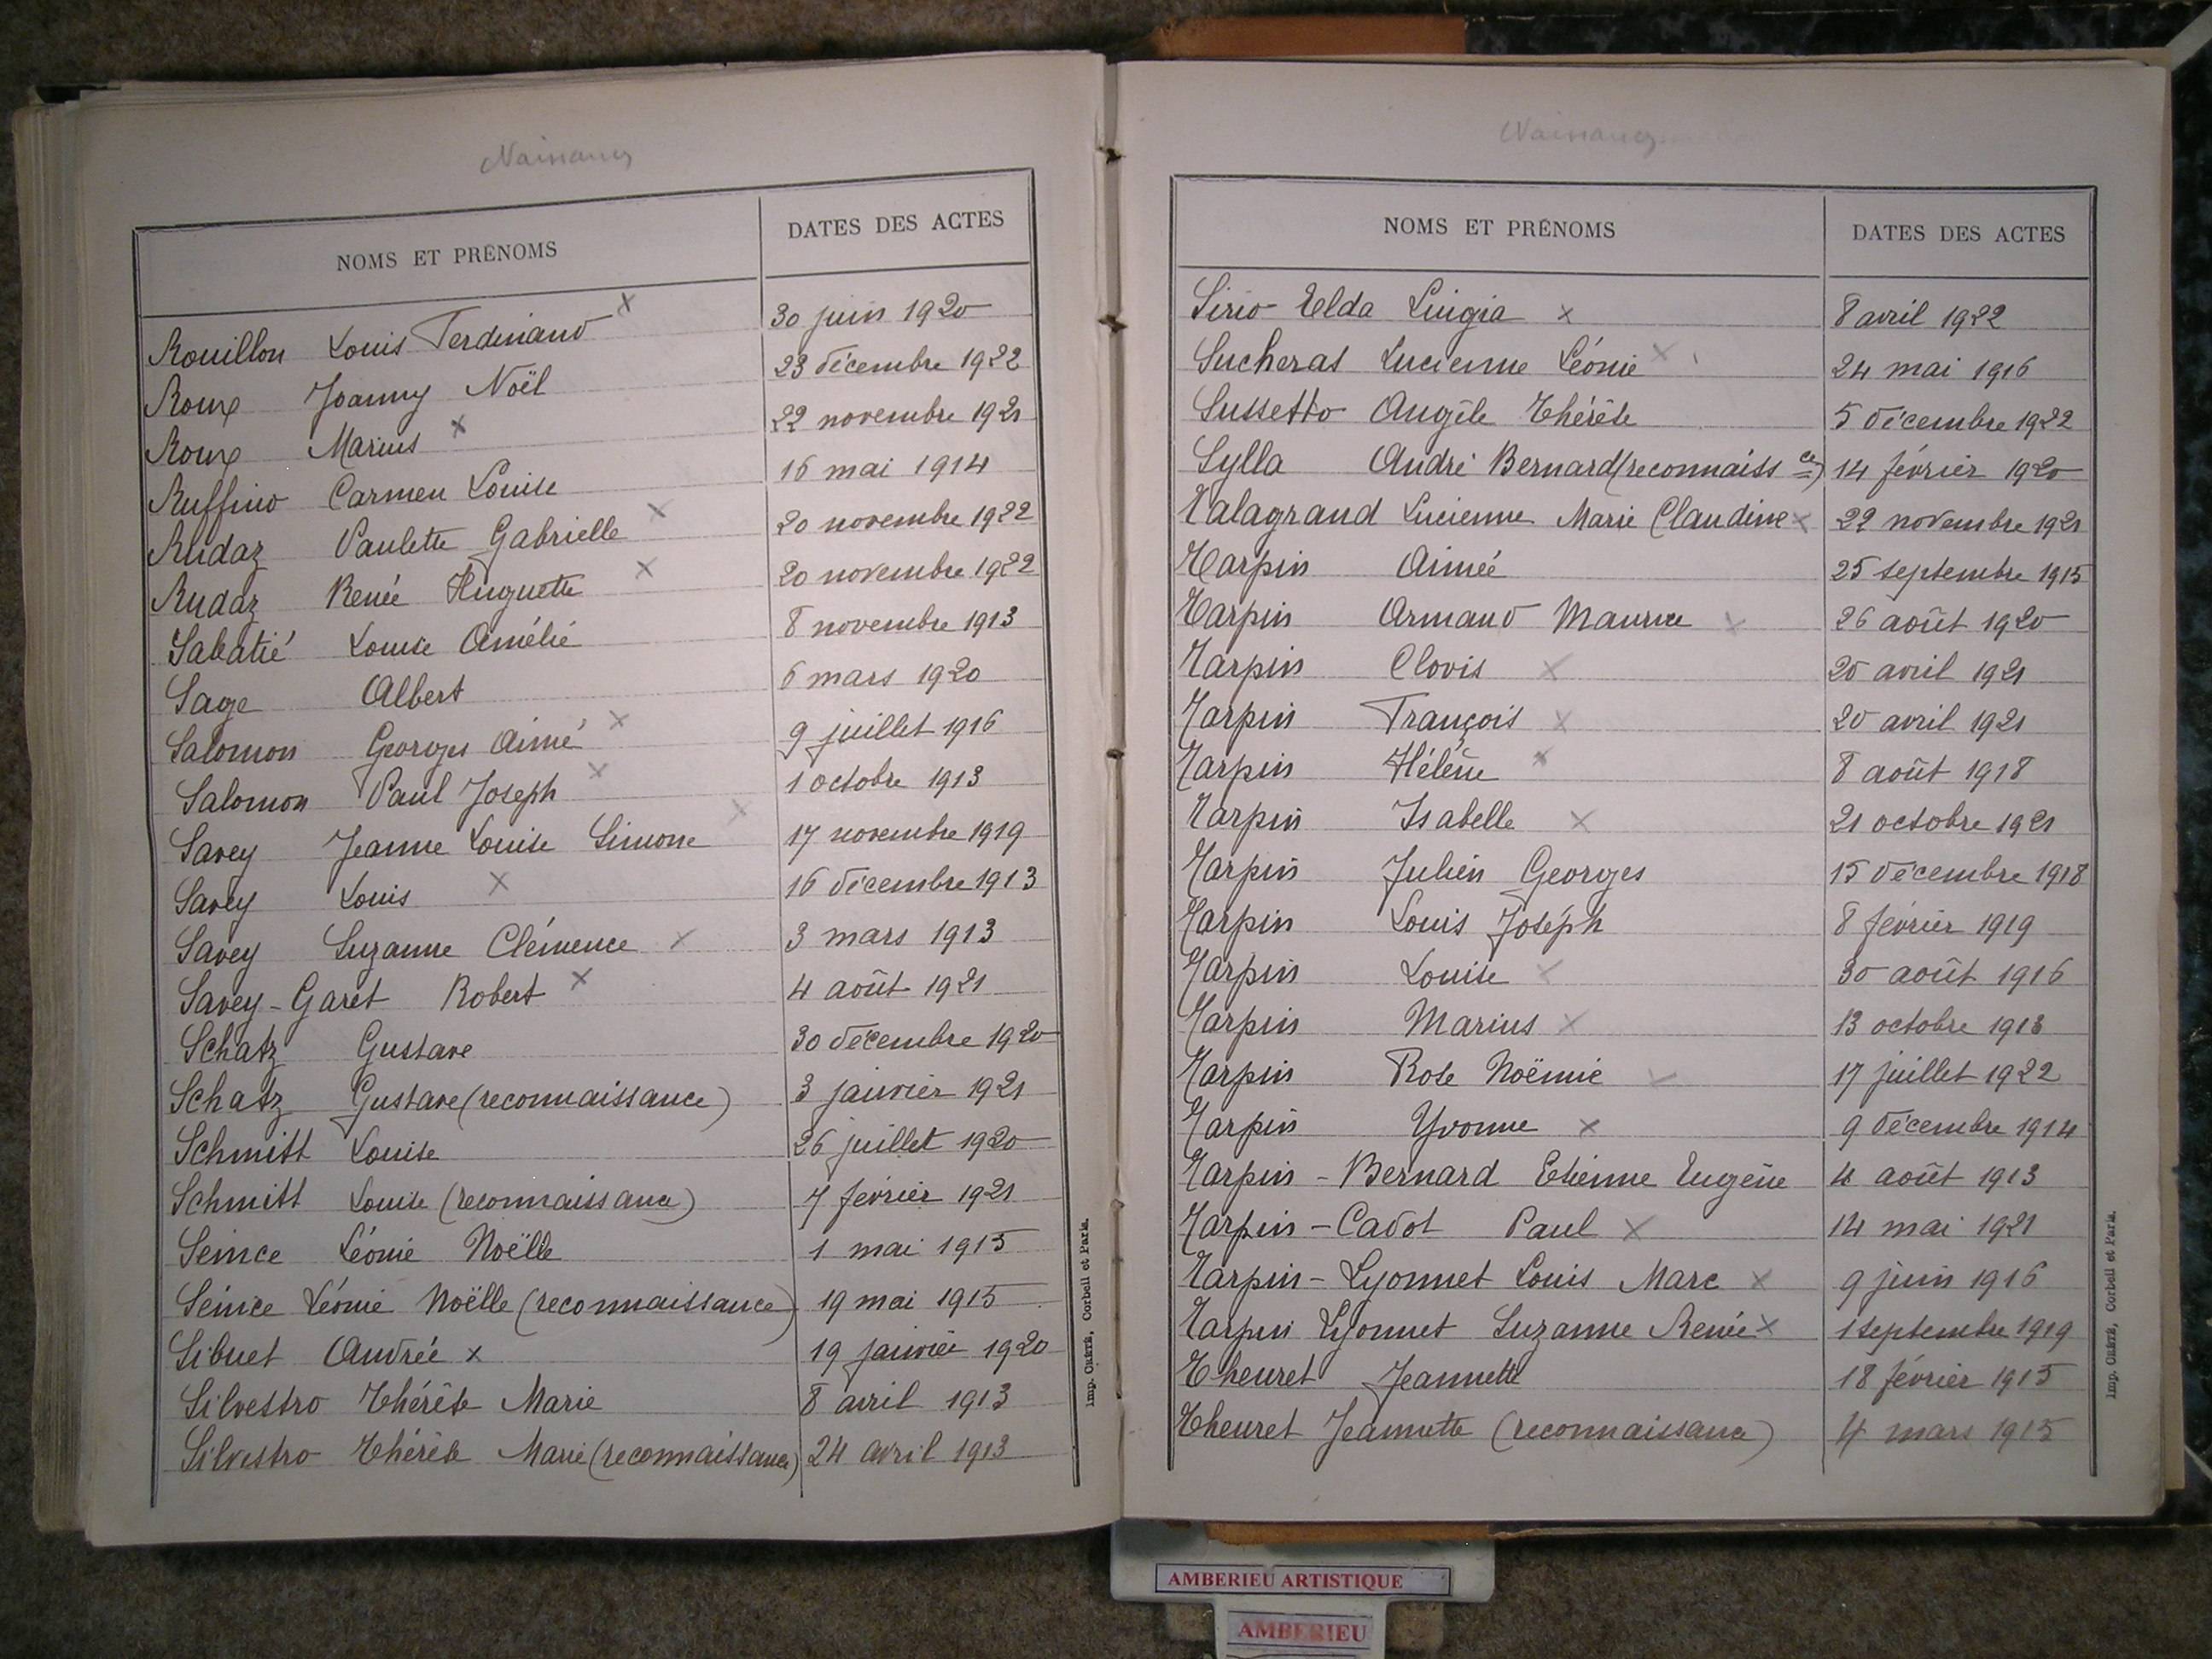 Naissances
NOMS ET PRÉNOMS DATES DES ACTES
Rouillon Louis Ferdinand x 30 juin 1920
Roux Joanny Noël 23 décembre 1922
Roux Marius x 22 novembre 1921
Ruffino Carmen Louise 16 mai 1914
Rudaz Paulette Gabrielle x 20 novembre 1922
Rudaz Renée Huguette x 20 novembre 1922
Sabatié Louise Amélie 8 novembre 1913
Sage Albert 6 mars 1920
Salomon Georges Aimé x 9 juillet 1916
Salomon Paul Joseph x 1 octobre 1913
Savey Jeanne Louise Simone x 17 novembre 1919
Savey Louis x 16 décembre 1913
Savey Suzanne Clémence x 3 mars 1913
Savey-Garet Robert x 4 août 1921
Schatz Gustave 30 décembre 1920
Schatz Gustave (reconnaissance) 3 janvier 1921
Schmitt Louise 26 juillet 1920
Schmitt Louise (reconnaissance) 7 février 1921
Seince Léonie Noëlle 1 mai 1915
Seince Léonie Noëlle (reconnaissance) 19 mai 1915
Sibuet Andrée x 19 janvier 1920
Silvestro Thérèse Marie 8 avril 1913
Silvestro Thérèse Marie (reconnaissance) 24 avril 1913
Imp. CRÉTÉ, Corbeil et Paris.
Naissances
NOMS ET PRÉNOMS DATES DES ACTES
Sirio Elda Luigia x 8 avril 1922
Sucheras Lucienne Léonie x 24 mai 1916
Sussetto Angèle Thérèse 5 décembre 1922
Sylla André Bernard (reconnaiss ce) 14 février 1920
Talagrand Lucienne Marie Claudine x 22 novembre 1921
Tarpin Aimée 25 septembre 1915
Tarpin Armand Maurice x 26 août 1920
Tarpin Clovis x 20 avril 1921
Tarpin François x 20 avril 1921
Tarpin Hélène x 8 août 1918
Tarpin Isabelle x 21 octobre 1921
Tarpin Julien Georges 15 décembre 1918
Tarpin Louis Joseph 8 février 1919
Tarpin Louise x 30 août 1916
Tarpin Marius x 13 octobre 1913
Tarpin Rose Noëmie x 17 juillet 1922
Tarpin Yvonne x 9 décembre 1914
Tarpin - Bernard Etienne Eugène 4 août 1913
Tarpin - Cadot Paul x 14 mai 1921
Tarpin - Lyonnet Louis Marc x 9 juin 1916
Tarpin Lyonnet Suzanne Renée x 1 septembre 1919
Theuret Jeannette 18 février 1915
Theuret Jeannette (reconnaissance) 4 mars 1915
Imp. CRÉTÉ, Corbeil et Paris.
AMBERIEU ARTISTIQUE
AMBERIEU